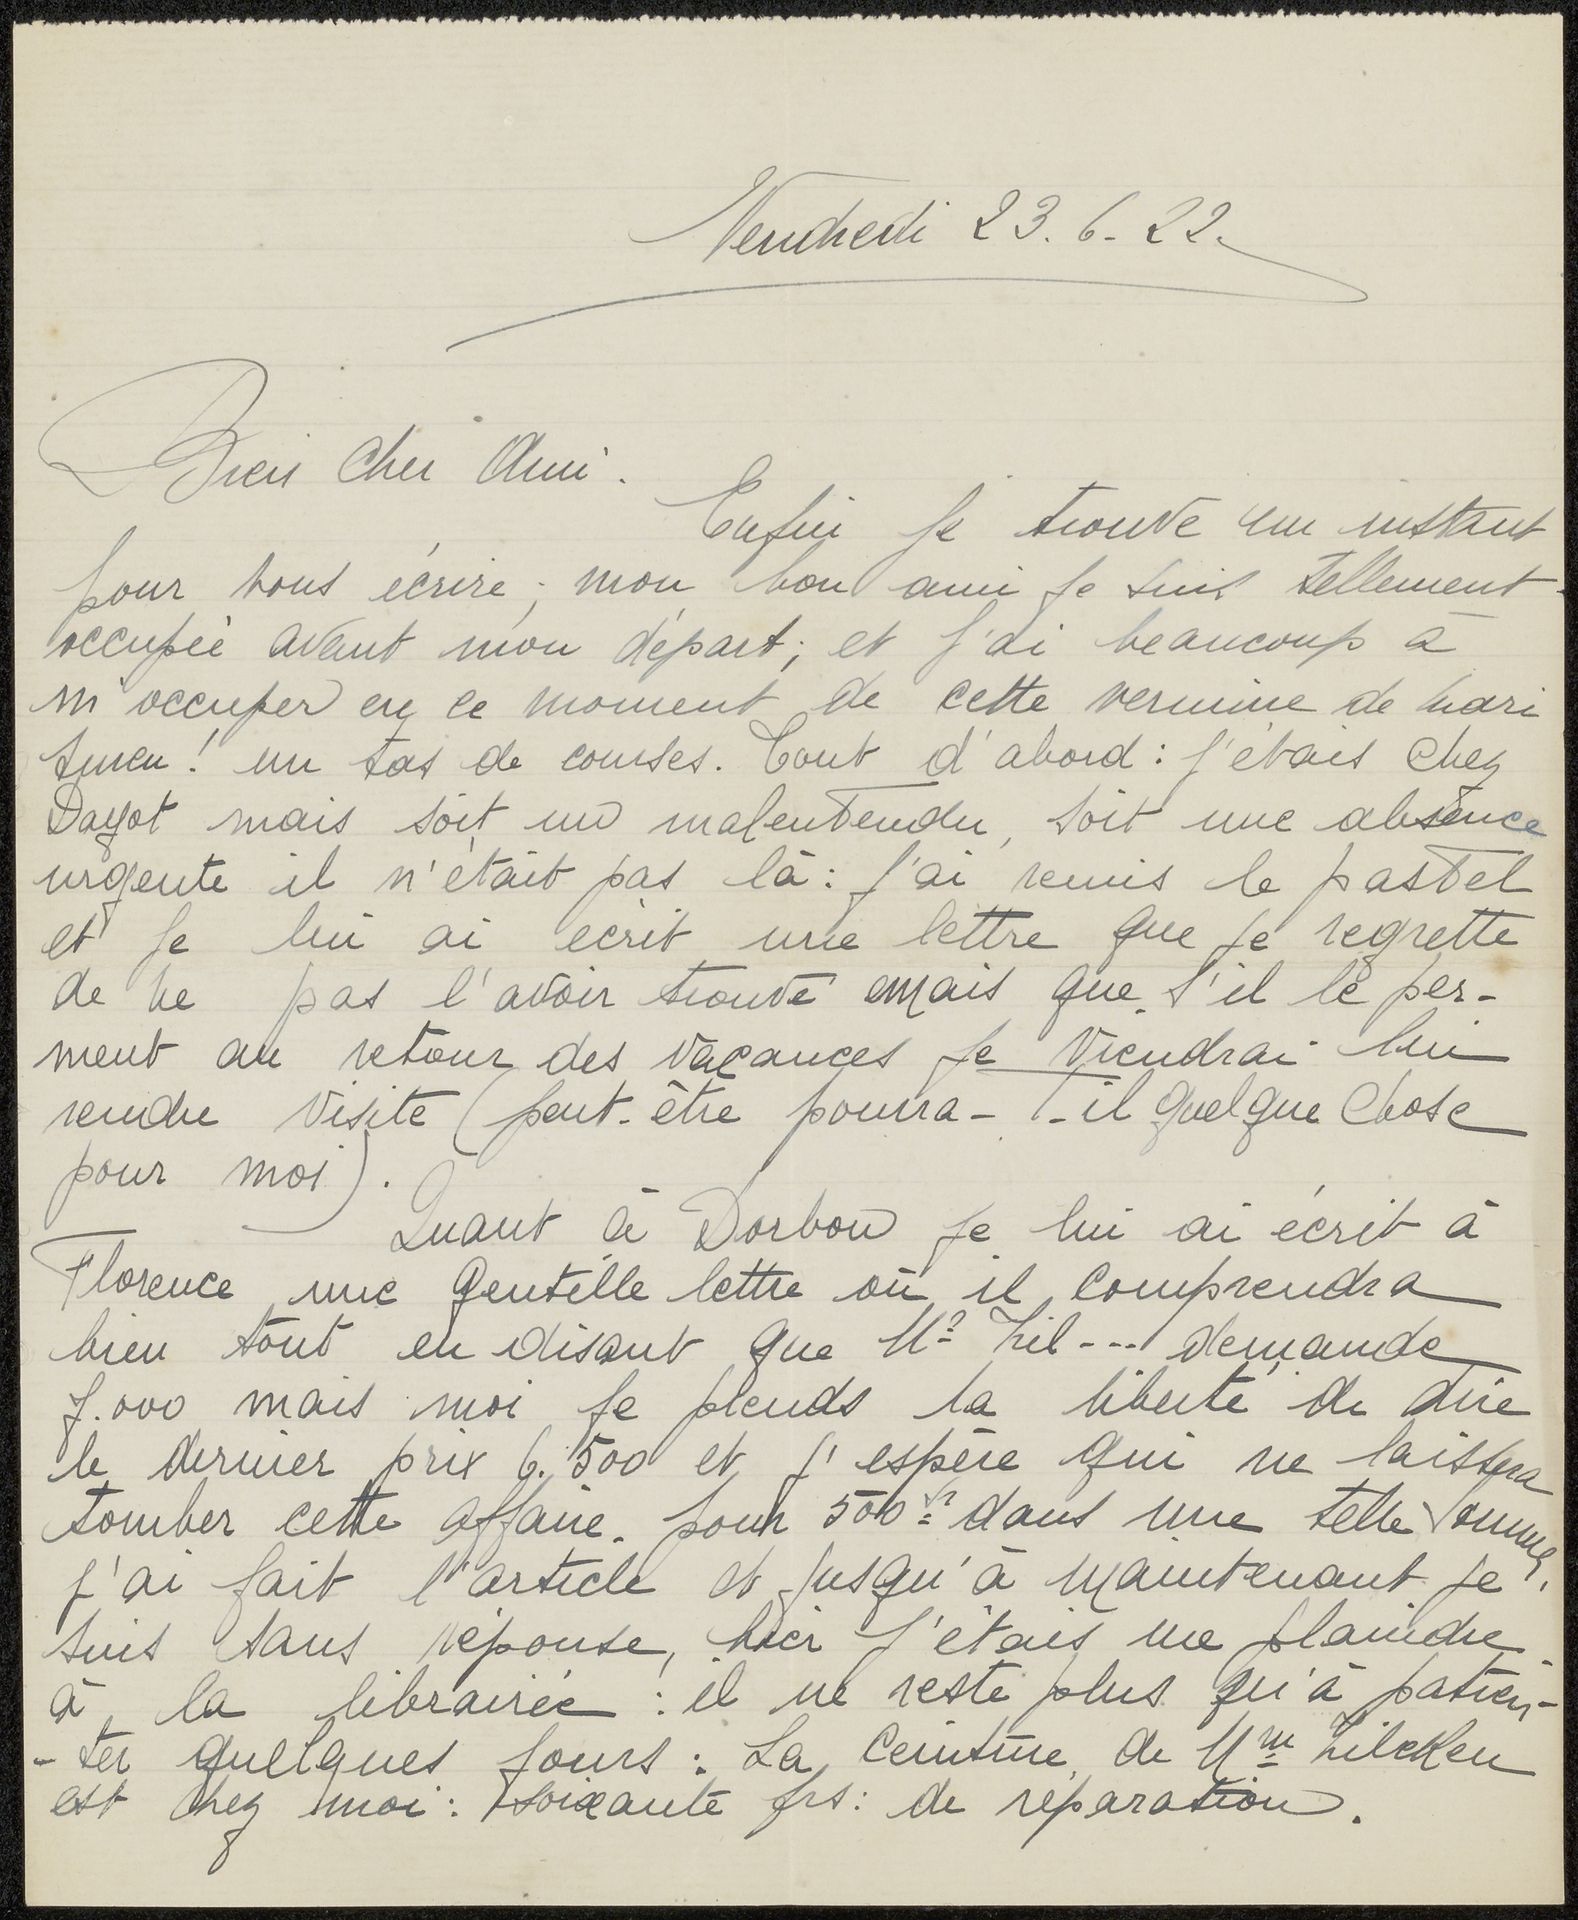 Vendredi 23.6.22.
Bien Cher Ami.
Enfin je trouve un instant
pour vous écrire; mon bon ami je suis tellement
occupée avant mon départ; et j'ai beaucoup à
m'occuper en ce moment de cette vermine de
! un tas de courses. Tout d'abord: j'étais chez
Dayot mais soit un malentendu, soit une absence
urgente il n'était pas là: j'ai remis le pastel
et je lui ai écrit une lettre que je regrette
de ne pas l'avoir trouvé mais que s'il le per-
ment au retour des vacances je viendrai lui
rendre visite (peut-être pourra-t-il quelque chose
pour moi).
Quant à Dorbon je lui ai écrit à
Florence une gentille lettre où il comprendra
bien tout en disant que Mr Zil--- demande
7.000 mais moi je prends la liberté de dire
le dernier prix 6.500 et j'espère qui ne laissera
tomber cette affaire. pour 500 frs dans une telle somme,
j'ai fait l'article et jusqu'à maintenant je
suis sans réponse, hier j'étais me plaindre
à la librairie: il ne reste plus qu'à patien-
-ter quelques jours: La Ceinture de Mme Zilcken
est chez moi: soixante frs: de réparation.